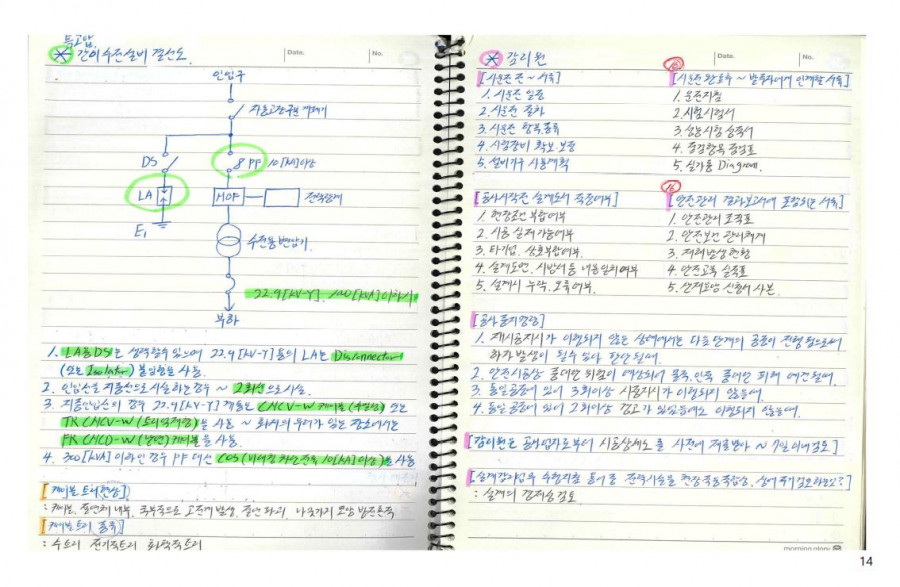 특고압
* 간이 수전설비 결선도.
Date.
No.
인입구
자동고장구분 개폐기
DS
PF 10[kA]이상
LA
MOF
전력량계
E₁
수전용 변압기
22.9[kV-Y], 1000[kVA]이하
부하
1. LA용 DS는 생략할 수 있으며 22.9[kV-Y]용의 LA는 Disconnector
(또는 Isolator) 붙임형을 사용.
2. 인입선을 지중선으로 시설하는 경우 ~ 2회선으로 시공.
3. 지중인입선의 경우 22.9[kV-Y] 계통은 CNCV-W 케이블(수밀형) 또는
TR CNCV-W(트리억제형)을 사용 ~ 화재의 우려가 있는 장소에서는
FR CNCO-W(난연)케이블을 사용.
4. 300[kVA] 이하인 경우 PF 대신 COS(비대칭 차단전류 10[kA]이상)을 사용
[케이블 트리현상]
: 케이블, 절연체 내부, 국부적으로 고전계 발생, 절연 파괴, 나뭇가지 모양 방전흔적
[케이블 트리 종류]
: 수트리 전기적트리 화학적트리
* 감리원
Date.
No.
[시운전 전 ~ 서류]
1. 시운전 일정
2. 시운전 절차
3. 시운전 항목, 종류
4. 시험장비 확보 보정
5. 설비기구 사용계획
[시운전 완료후 ~ 발주자에게 인계할 서류]
1. 운전지침
2. 시험성적서
3. 성능시험 성적서
4. 점검항목 점검표
5. 실가동 Diagram.
[공사시작전 설계도서 적정여부]
1. 현장조건 부합여부
2. 시공 실제가능여부
3. 타사업, 상호부합여부.
4. 설계도면, 시방서 등 내용 일치여부
5. 설계서 누락, 오류여부.
[안전관리 결과보고서에 포함되는 서류]
1. 안전관리 조직표
2. 안전보건 관리체계
3. 재해발생 현황
4. 안전교육 실적표
5. 산재요양 신청서 사본.
[공사 중지명령]
1. 재시공지시가 이행되지 않는 상태에서는 다음 단계의 공정이 진행 됨으로써
하자 발생이 될수 있다 판단될때.
2. 안전시공상 중대한 위험이 예상되어 물적, 인적 중대한 피해 예견될때.
3. 동일공정에 있어 3회이상 시공지시가 이행되지 않을때.
4. 동일 공정에 있어 2회이상 경고가 있었음에도 이행되지 않을때.
[감리원은 공사업자로부터 시공상세도를 사전에 제출받아 ~ 7일 이내 검토]
: 설계의 경제성 검토
morning glory
14